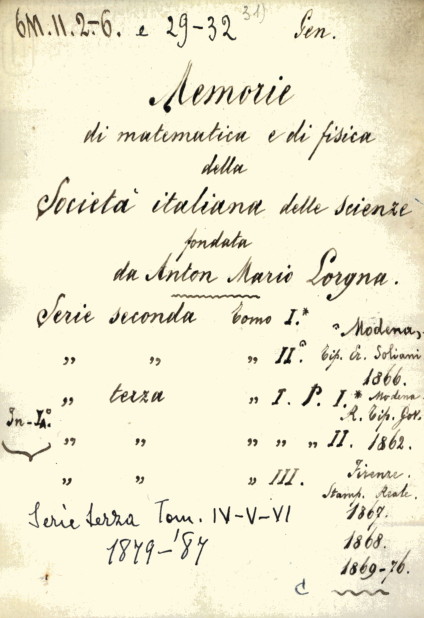 6M.II.2-6. e 29-32 31) Gen.
Memorie
di matematica e di fisica
della
Società italiana delle scienze
fondata
da Anton Mario Lorgna.
Serie seconda Tomo I.* Modena,
„ „ „ II° Tip. Er. Soliani
1866.
„ terza „ I. P. I.* Modena
In-4°. R. Tip. Gov.
„ „ „ „ „ II. 1862.
„ „ „ III. Firenze.
Stamp. Reale.
Serie terza Tom. IV-V-VI 1867.
1879-'87 1868.
1869-76.
C